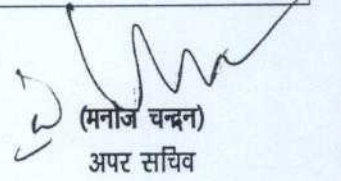 (मनोज चन्दन)
अपर सचिव